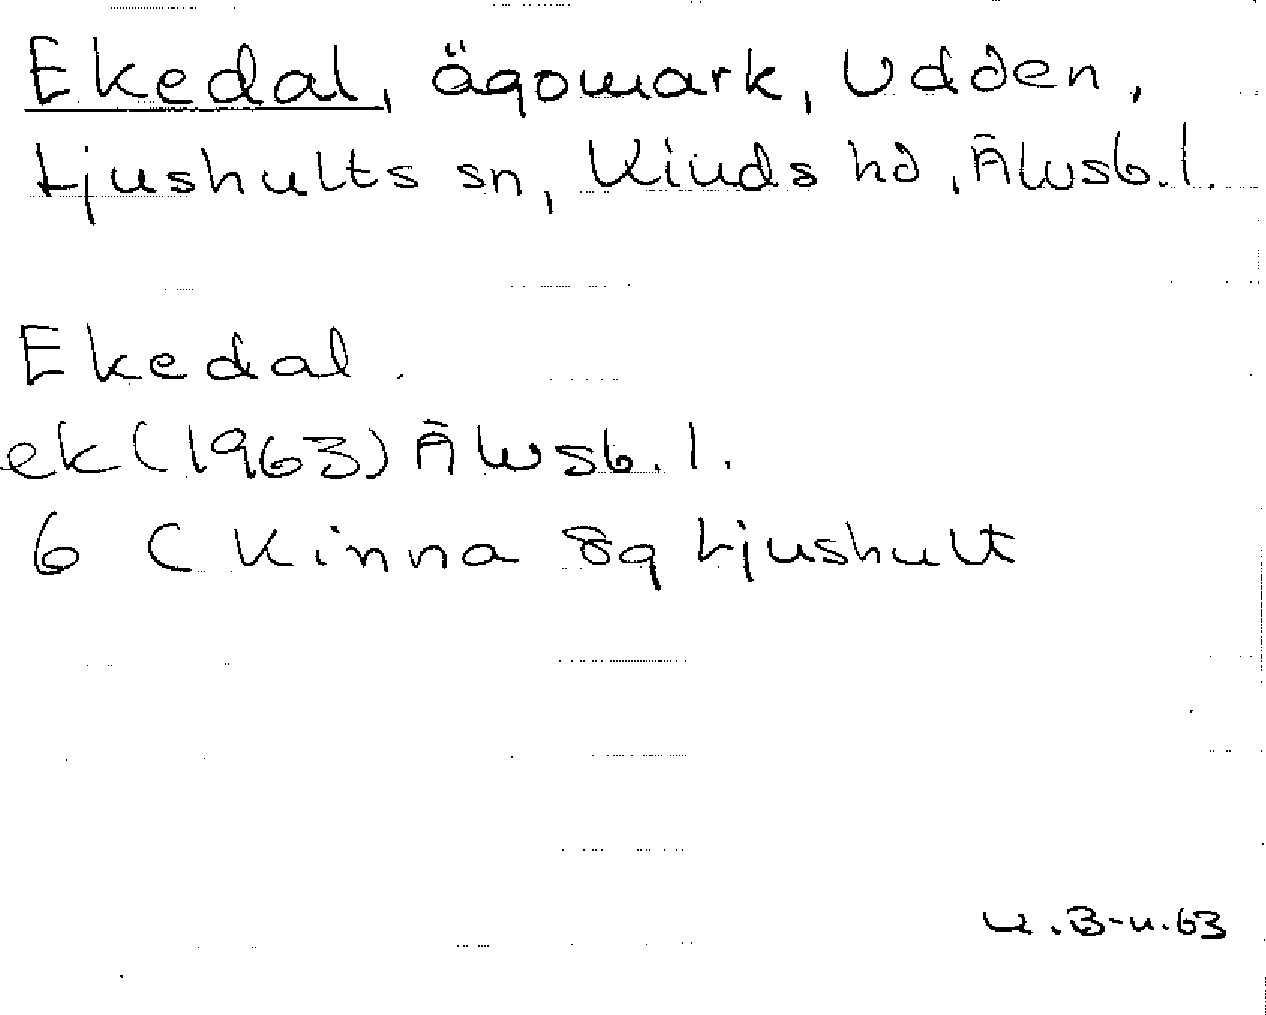 Ekedal, ägomark, Udden,
Ljushults sn, Kinds hd, Älvsb. l.
Ekedal.
ek (1963) Älvsb. l.
6 C Kinna 8g Ljushult
K.B-n.63